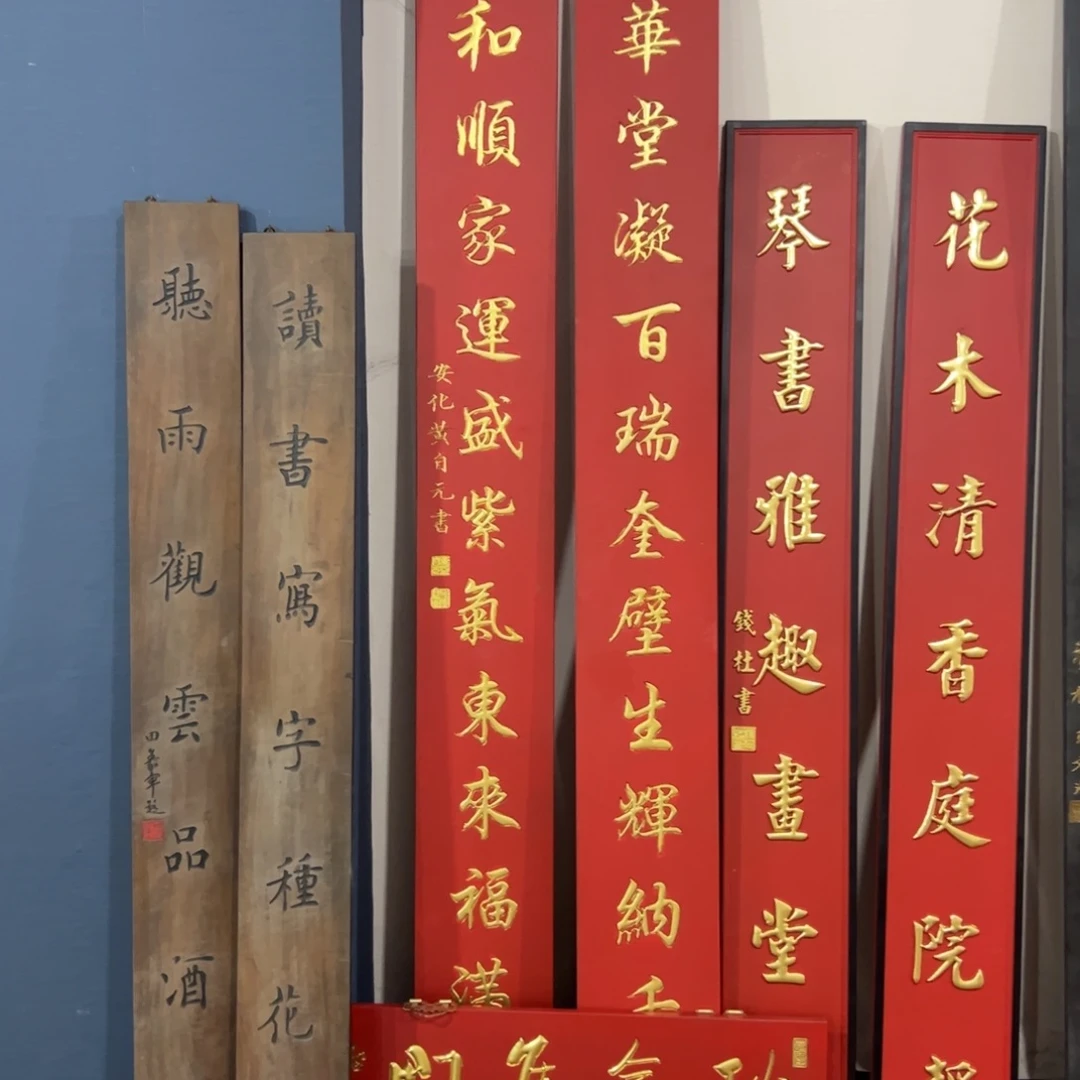 花木清香庭院
琴書雅趣畫堂
錢杜書
華堂凝百瑞奎壁生輝納
和順家運盛紫氣東來福滿
安化黃自元書
讀書寫字種花
聽雨觀雲品酒